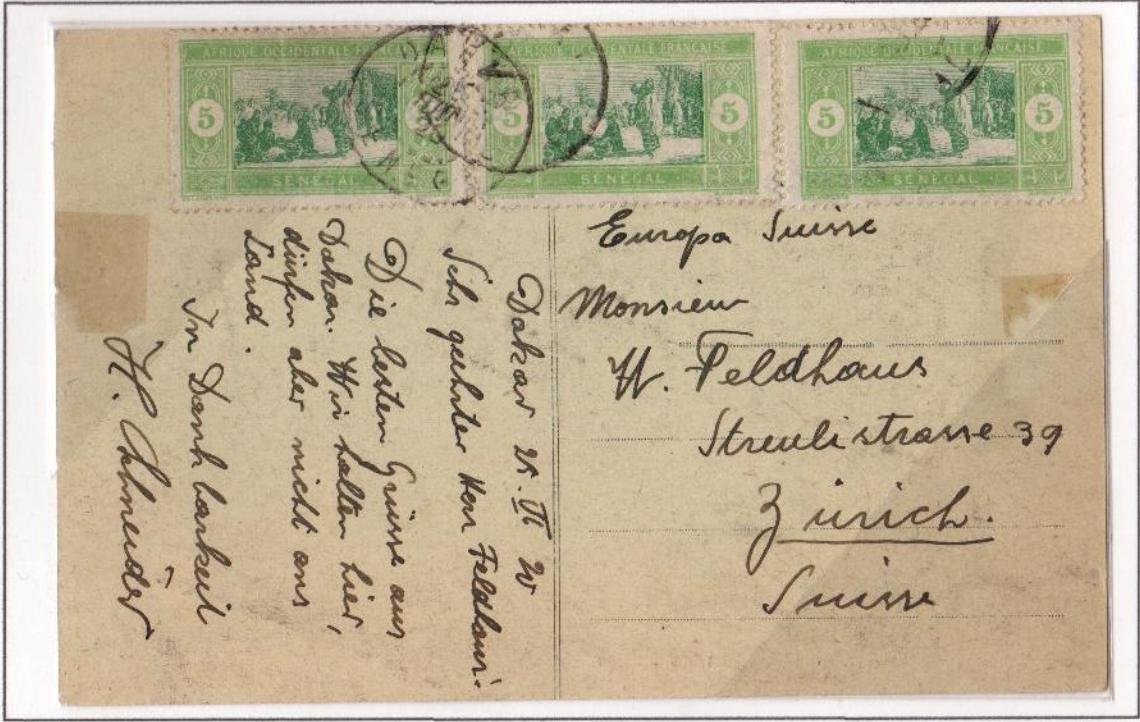 AFRIQUE OCCIDENTALE FRANÇAISE
5 5
SÉNÉGAL
AFRIQUE OCCIDENTALE FRANÇAISE
5 5
SÉNÉGAL
AFRIQUE OCCIDENTALE FRANÇAISE
5 5
SÉNÉGAL
Europa Suisse
Monsieur
H. Feldhaus
Streulistrasse 39
Zürich.
Suisse
Dakar 25. VI 20
Sehr geehrter Herr Feldhaus!
Die besten Grüsse aus
Dakar. Wir halten hier,
dürfen aber nicht ans
Land.
In Dankbarkeit
H.